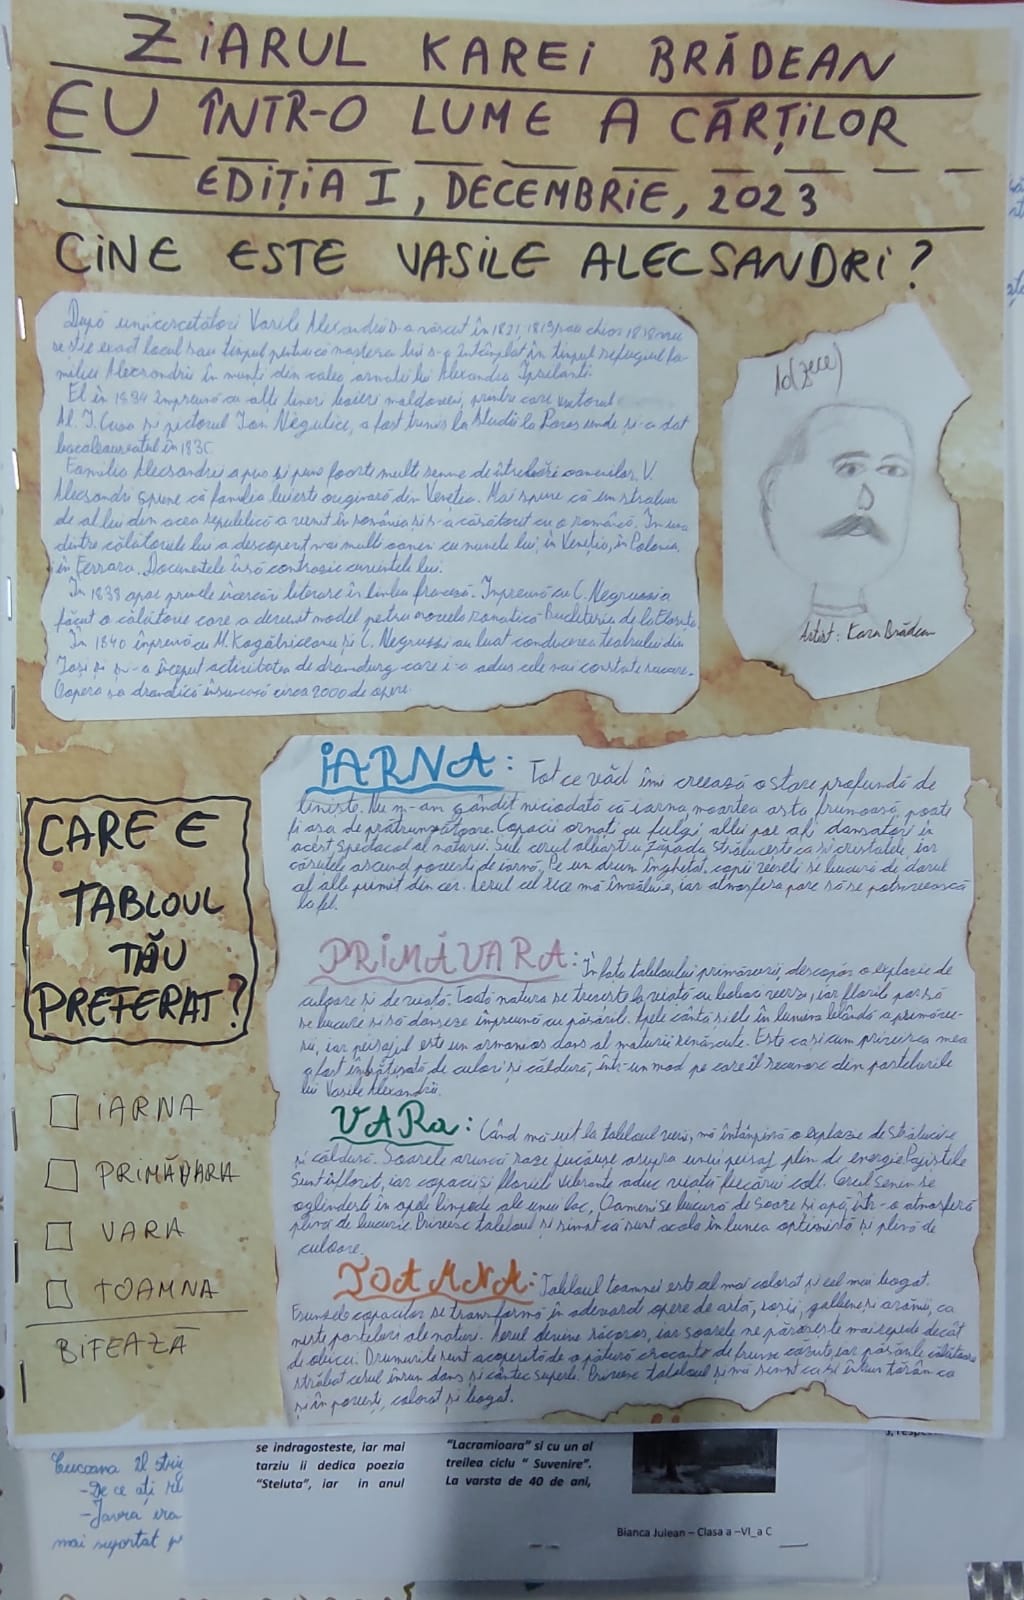 ZIARUL KAREI BRĂDEAN
EU ÎNTR-O LUME A CĂRȚILOR
EDIȚIA I, DECEMBRIE, 2023
CINE ESTE VASILE ALECSANDRI?
După unii cercetători Vasile Alecsandri s-a născut în 1821, 1819, sau chiar 1818 nu
se știe exact locul sau timpul pentru că nașterea lui s-a întâmplat în timpul refugiului fa-
miliei Alecsandrii în munți din calea armatei lui Alexandru Ipsilanti.
El în 1834 împreună cu alți tineri boieri moldoveni, printre care viitorul
Al. I. Cuza și pictorul Ion Negulici, a fost trimis la studii la Paris unde și-a dat
bacalaureatul în 1835.
Familia Alecsandri a pus și pune foarte multe semne de întrebări oamenilor. V.
Alecsandri spune că familia lui este originară din Veneția. Mai spune că un străbun
de al lui din acea republică a venit în România și s-a căsătorit cu o româncă. În una
dintre călătoriile lui a descoperit mai mulți oameni cu numele lui, în Veneția, în Polonia,
în Ferrara. Documentele însă contrazic cuvintele lui.
În 1838 apar primele încercări literare în limba franceză. Împreună cu C. Negruzzi a
făcut o călătorie care a devenit model pentru nuvela romatică Buchetiera de la Florența
În 1840 împreună cu M. Kogălniceanu și C. Negruzzi au luat conducerea teatrului din
Iași și și-a început activitatea de dramaturg care i-a adus cele mai constate succese.
Opera sa dramatică însumează circa 2000 de opere.
10(zece)
Artist: Kara Brădean
IARNA: Tot ce văd îmi creează o stare profundă de
liniște. Nu m-am gândit niciodată că iarna, moartea asta frumoasă, poate
fi așa de pătrunzătoare. Copacii ornați cu fulgi albi par a fi dansatori în
acest spectacol al naturii. Sub cerul albastru zăpada strălucește ca și cristalele, iar
căsuțele ascund povești de iarnă. Pe un drum înghețat, copii veseli se bucură de darul
al alb primit din cer. Aerul cel rece mă învăluie, iar atmosfera pare să se potrivească
la fel.
PRIMĂVARA: În fața tabloului primăverii, descopăr o explozie de
culoare și de viață. Toată natura se trezește la viață cu haine verzi, iar florile par să
se bucure și să danseze împreună cu păsările. Apele cântă și ele în lumina blândă a primăve-
rii, iar peisajul este un armonios dans al naturii renăscute. Este ca și cum privirea mea
a fost îmbrățișată de culori și căldură, într-un mod pe care îl recunosc din pastelurile
lui Vasile Alecsandri.
VARa: Când mă uit la tabloul verii, mă întâmpină o explozie de strălucire
și căldură. Soarele aruncă raze jucăușe asupra unui peisaj plin de energie. Pajiștile
sunt înflorit, iar copacii și florile vibrante aduc viață fiecărui colț. Cerul senin se
oglindește în apele limpede ale unui lac. Oamenii se bucură de soare și apă, într-o atmosferă
plină de bucurie. Privesc tabloul și simt că sunt acolo în lumea optimistă și plină de
culoare.
TOAMNA: Tabloul toamnei este cel mai colorat și cel mai bogat.
Frunzele copacilor se transformă în adevărate opere de artă, roșii, galbene și arămii, ca
niște pasteluri ale naturii. Aerul devine răcoros, iar soarele ne părăsește mai repede decât
de obicei. Drumurile sunt acoperită de o pătură crocantă de frunze căzute, iar păsările călătoare
străbat cerul într-un dans și cântec superb. Privesc tabloul și mă simt ca și într-un tărâm ca
și în povești, colorat și bogat.
CARE E
TABLOUL
TĂU
PREFERAT?
IARNA
PRIMĂVARA
VARA
TOAMNA
BIFEAZĂ
Cucoana îl strig
-De ce ați
-Javra era
mai suportat
se indragosteste, iar mai
tarziu ii dedica poezia
"Steluta", iar in anul
"Lacramioara" si cu un al
treilea ciclu " Suvenire".
La varsta de 40 de ani,
Bianca Julean – Clasa a –VI_a C